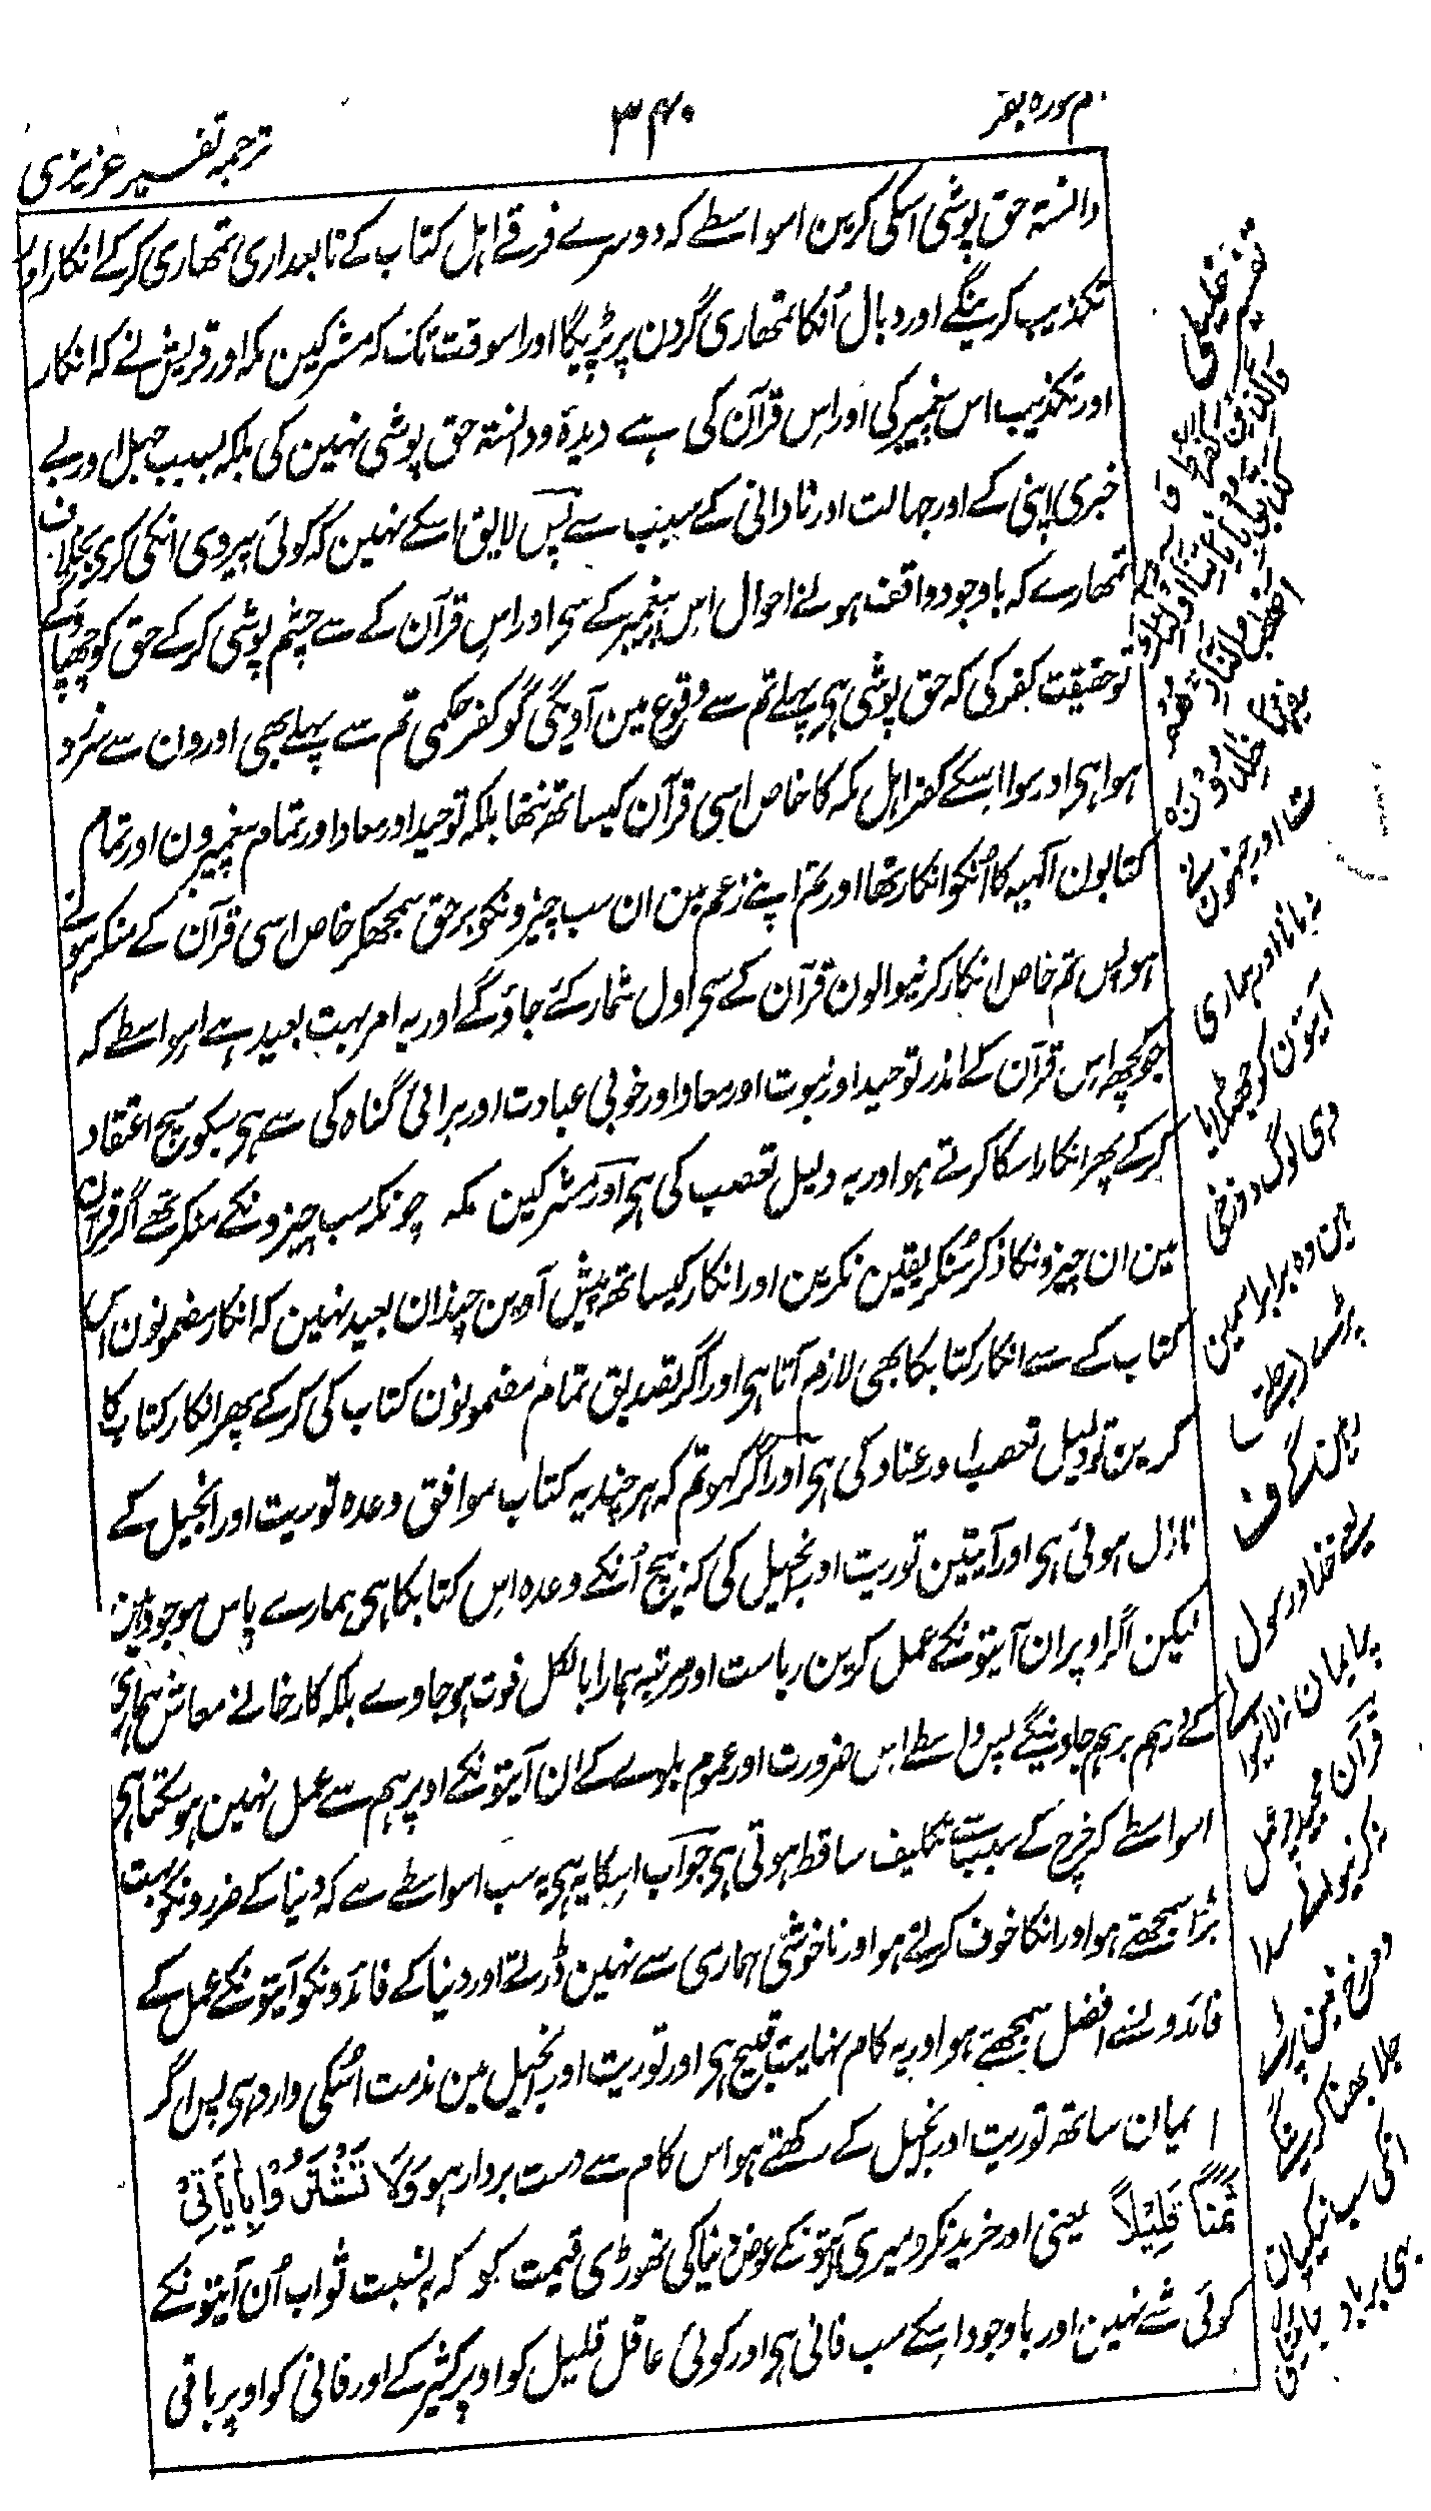 ترجمہ تفسیر عزیزی
۳۴۰
الم سورہ بقر
دانستہ حق پوشی اسکی کرین اسواسطے کہ دوسرے فرقے اہل کتاب کے تابعداری تمھاری کرکے انکار اور
تکذیب کرینگے اور وبال اُنکا تمھاری گردن پر پڑیگا اور اسوقت تک کہ مشرکین مکہ اور قریش نے کہ انکار
اور تکذیب اس پیغمبر کی اور اس قرآن کی ہے دیدہ و دانستہ حق پوشی نہین کی بلکہ بسبب جہل اور بے
خبری اپنی کے اور جہالت اور نادانی کے سبب سے پس لایق اسکے نہین کہ کوئی پیروی انکی کری بخلاف
تمھارے کہ باوجود واقف ہونے احوال اس پیغمبر کے سی اور اس قرآن کے سے چشم پوشی کرکے حق کو چھپاؤگے
تو حقیقت کفر کی کہ حق پوشی ہی پہلے تم سے وقوع مین آویگی گو کفر حکمی تم سے پہلے بھی اورون سے سرزد
ہوا ہی اور سوا اسکے کفر اہل مکہ کا خاص اسی قرآن کیساتھ نتھا بلکہ توحید اور معاد اور تمام پیغمبرون اور تمام
کتابون الٰہیہ کا اُنکو انکار تھا اور تم اپنے زعم مین ان سب چیزونکو برحق سمجھکر خاص اسی قرآن کے منکر ہوئے
ہو پس تم خاص انکار کرنیوالون قرآن کے سی اول شمار کئے جاؤگے اور یہ امر بہت بعید ہے اسواسطے کہ
جو کچھ اس قرآن کے اندر توحید اور نبوت اور معاد اور خوبی عبادت اور برائی گناہ کی سے ہی سبکو سچ اعتقاد
کرکے پھر انکار اسکا کرتے ہو اور یہ دلیل تعصب کی ہی اور مشرکین مکہ چونکہ سب چیزونکے منکر تھے اگر قرآن
مین ان چیزونکا ذکر سُنکر یقین نکرین اور انکار کیساتھ پیش آوین چندان بعید نہین کہ انکار مضمونون اس
کتاب کے سے انکار کتابکا بھی لازم آتا ہی اور اگر تصدیق تمام مضمونون کتاب کی کرکے پھر انکار کتاب کا
کرین تو دلیل تعصب اور عناد کی ہی اور اگر کہو تم کہ ہر چند یہ کتاب موافق وعدہ توریت اور انجیل کے
نازل ہوئی ہی اور آیتین توریت اور انجیل کی کہ بیچ اُنکے وعدہ اس کتابکا ہی ہمارے پاس موجود ہین
لیکن اگر اوپر ان آیتونکے عمل کرین ریاست اور مرتبہ ہمارا بالکل فوت ہو جاوے بلکہ کارخانے معاش ہماری
کے درہم برہم جاوینگے پس واسطے اس ضرورت اور عموم بلوے کے ان آیتونکے اوپر ہم سے عمل نہین ہو سکتا ہی
اسواسطے کہ حرج کے سبب تکلیف ساقط ہوتی ہی جواب اسکا یہ ہی یہ سب اسواسطے سے کہ دنیا کے ضررونکو بہت
بڑا سمجھتے ہو اور انکا خوف کرتے ہو اور ناخوشی ہماری سے نہین ڈرتے اور دنیا کے فائدونکو آیتونکے عمل کے
فائدونسے افضل سمجھتے ہو اور یہ کام نہایت قبیح ہی اور توریت اور انجیل مین مذمت اسکی وارد ہی پس اگر
ایمان ساتھ توریت اور انجیل کے رکھتے ہو اس کام سے دست بردار ہو وَلَا تَشْتَرُوْا بِاٰیَاتِیْ
ثَمَنًا قَلِیْلًا یعنی اور خرید نکرو میری آیتونکے عوض دنیا کی تھوڑی قیمت کو کہ بہ نسبت ثواب اُن آیتونکے
کوئی شے نہین اور باوجود اسکے سب فانی ہی اور کوئی عاقل قلیل کو اوپر کثیر کے اور فانی کو اوپر باقی
تفسیر خلیلی
والذین کفروا و
کذبوا بایاتنا اولئک
اصحاب النار ھم
فیھا خلدون
اور جنھون نے
نہ مانا اور ہماری
آیتون کو جھٹلایا
وہی لوگ دوزخی
ہین وہ برابر اسمین
پڑے
رہین گے ف
یعنے خدا و رسول
پر ایمان نہ لانیوالے
قرآن مجید پر عمل
نہ کرنیوالے سدا
دوزخ مین پڑے
جلا بھنا کرینگے
انکی سب نیکیان
بھی برباد جائینگی